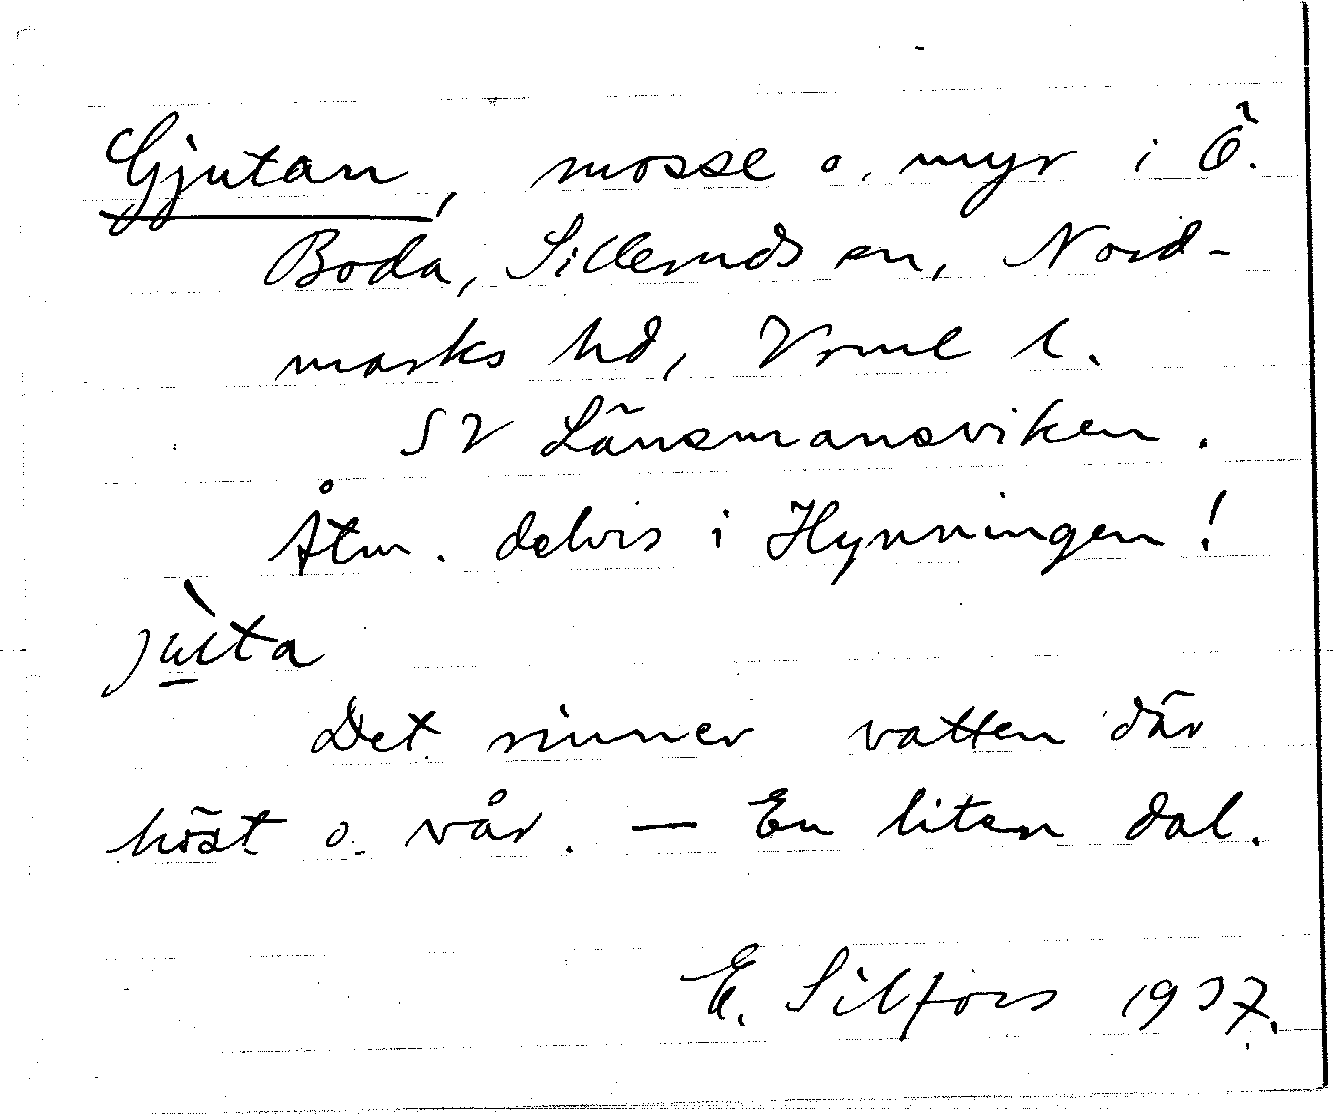 Gjutan, mosse o. myr i Ö.
Boda, Silleruds sn, Nord-
marks hd, Vrml l.
SV Länsmansviken.
Åtm. delvis i Hynningen!
jùta
Det rinner vatten där
höst o. vår. — En liten dal.
E. Silfors 1937.